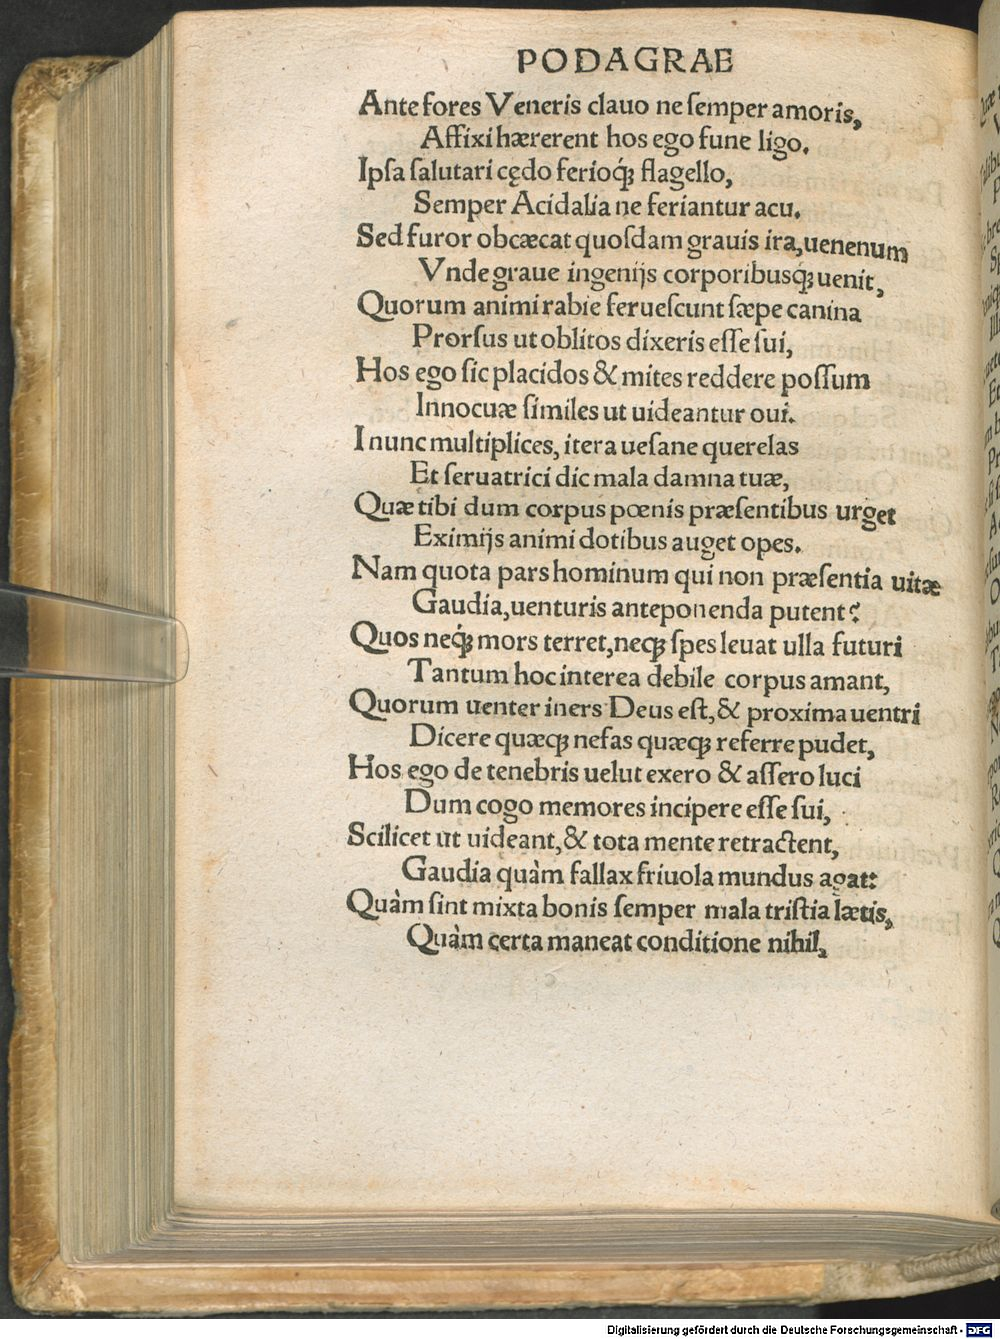 PODAGRAE
Ante fores Veneris clauo ne ſemper amoris,
Affixi hærerent hos ego fune ligo.
Ipſa ſalutari cędo ferioq́ꝫ flagello,
Semper Acidalia ne feriantur acu.
Sed furor obcæcat quoſdam grauis ira, uenenum
Vnde graue ingenijs corporibusq́ꝫ uenit,
Quorum animi rabie ferueſcunt ſæpe canina
Prorſus ut oblitos dixeris eſſe ſui,
Hos ego ſic placidos & mites reddere poſſum
Innocuæ ſimiles ut uideantur oui.
I nunc multiplices, itera ueſane querelas
Et ſeruatrici dic mala damna tuæ,
Quæ tibi dum corpus pœnis præſentibus urget
Eximijs animi dotibus auget opes.
Nam quota pars hominum qui non præſentia uitæ
Gaudia, uenturis anteponenda putent?
Quos neq́ꝫ mors terret, neqꝫ ſpes leuat ulla futuri
Tantum hoc interea debile corpus amant,
Quorum uenter iners Deus eſt, & proxima uentri
Dicere quæqꝫ nefas quæqꝫ referre pudet,
Hos ego de tenebris uelut exero & aſſero luci
Dum cogo memores incipere eſſe ſui,
Scilicet ut uideant, & tota mente retractent,
Gaudia quàm fallax friuola mundus agat:
Quàm ſint mixta bonis ſemper mala triſtia lætis,
Quàm certa maneat conditione nihil,
Digitalisierung gefördert durch die Deutsche Forschungsgemeinschaft - DFG